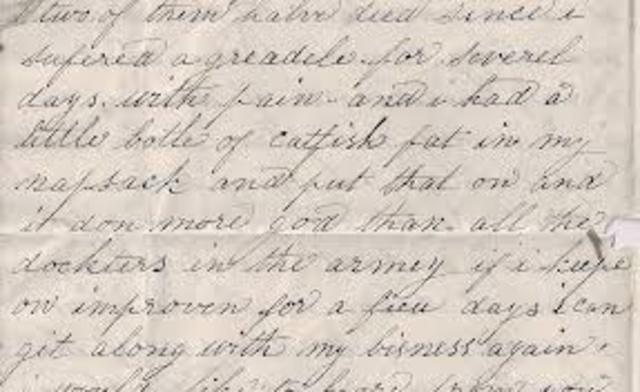 two of them halve died since i
sufered a greadele for severel
days. with pain. and i had a
little botle of catfish fat in my
napsack and put that on and
it don more god than all the
dockters in the armey if i keepe
on improven for a fieu days i can
get along with my bisness again.
i would like to heare from you